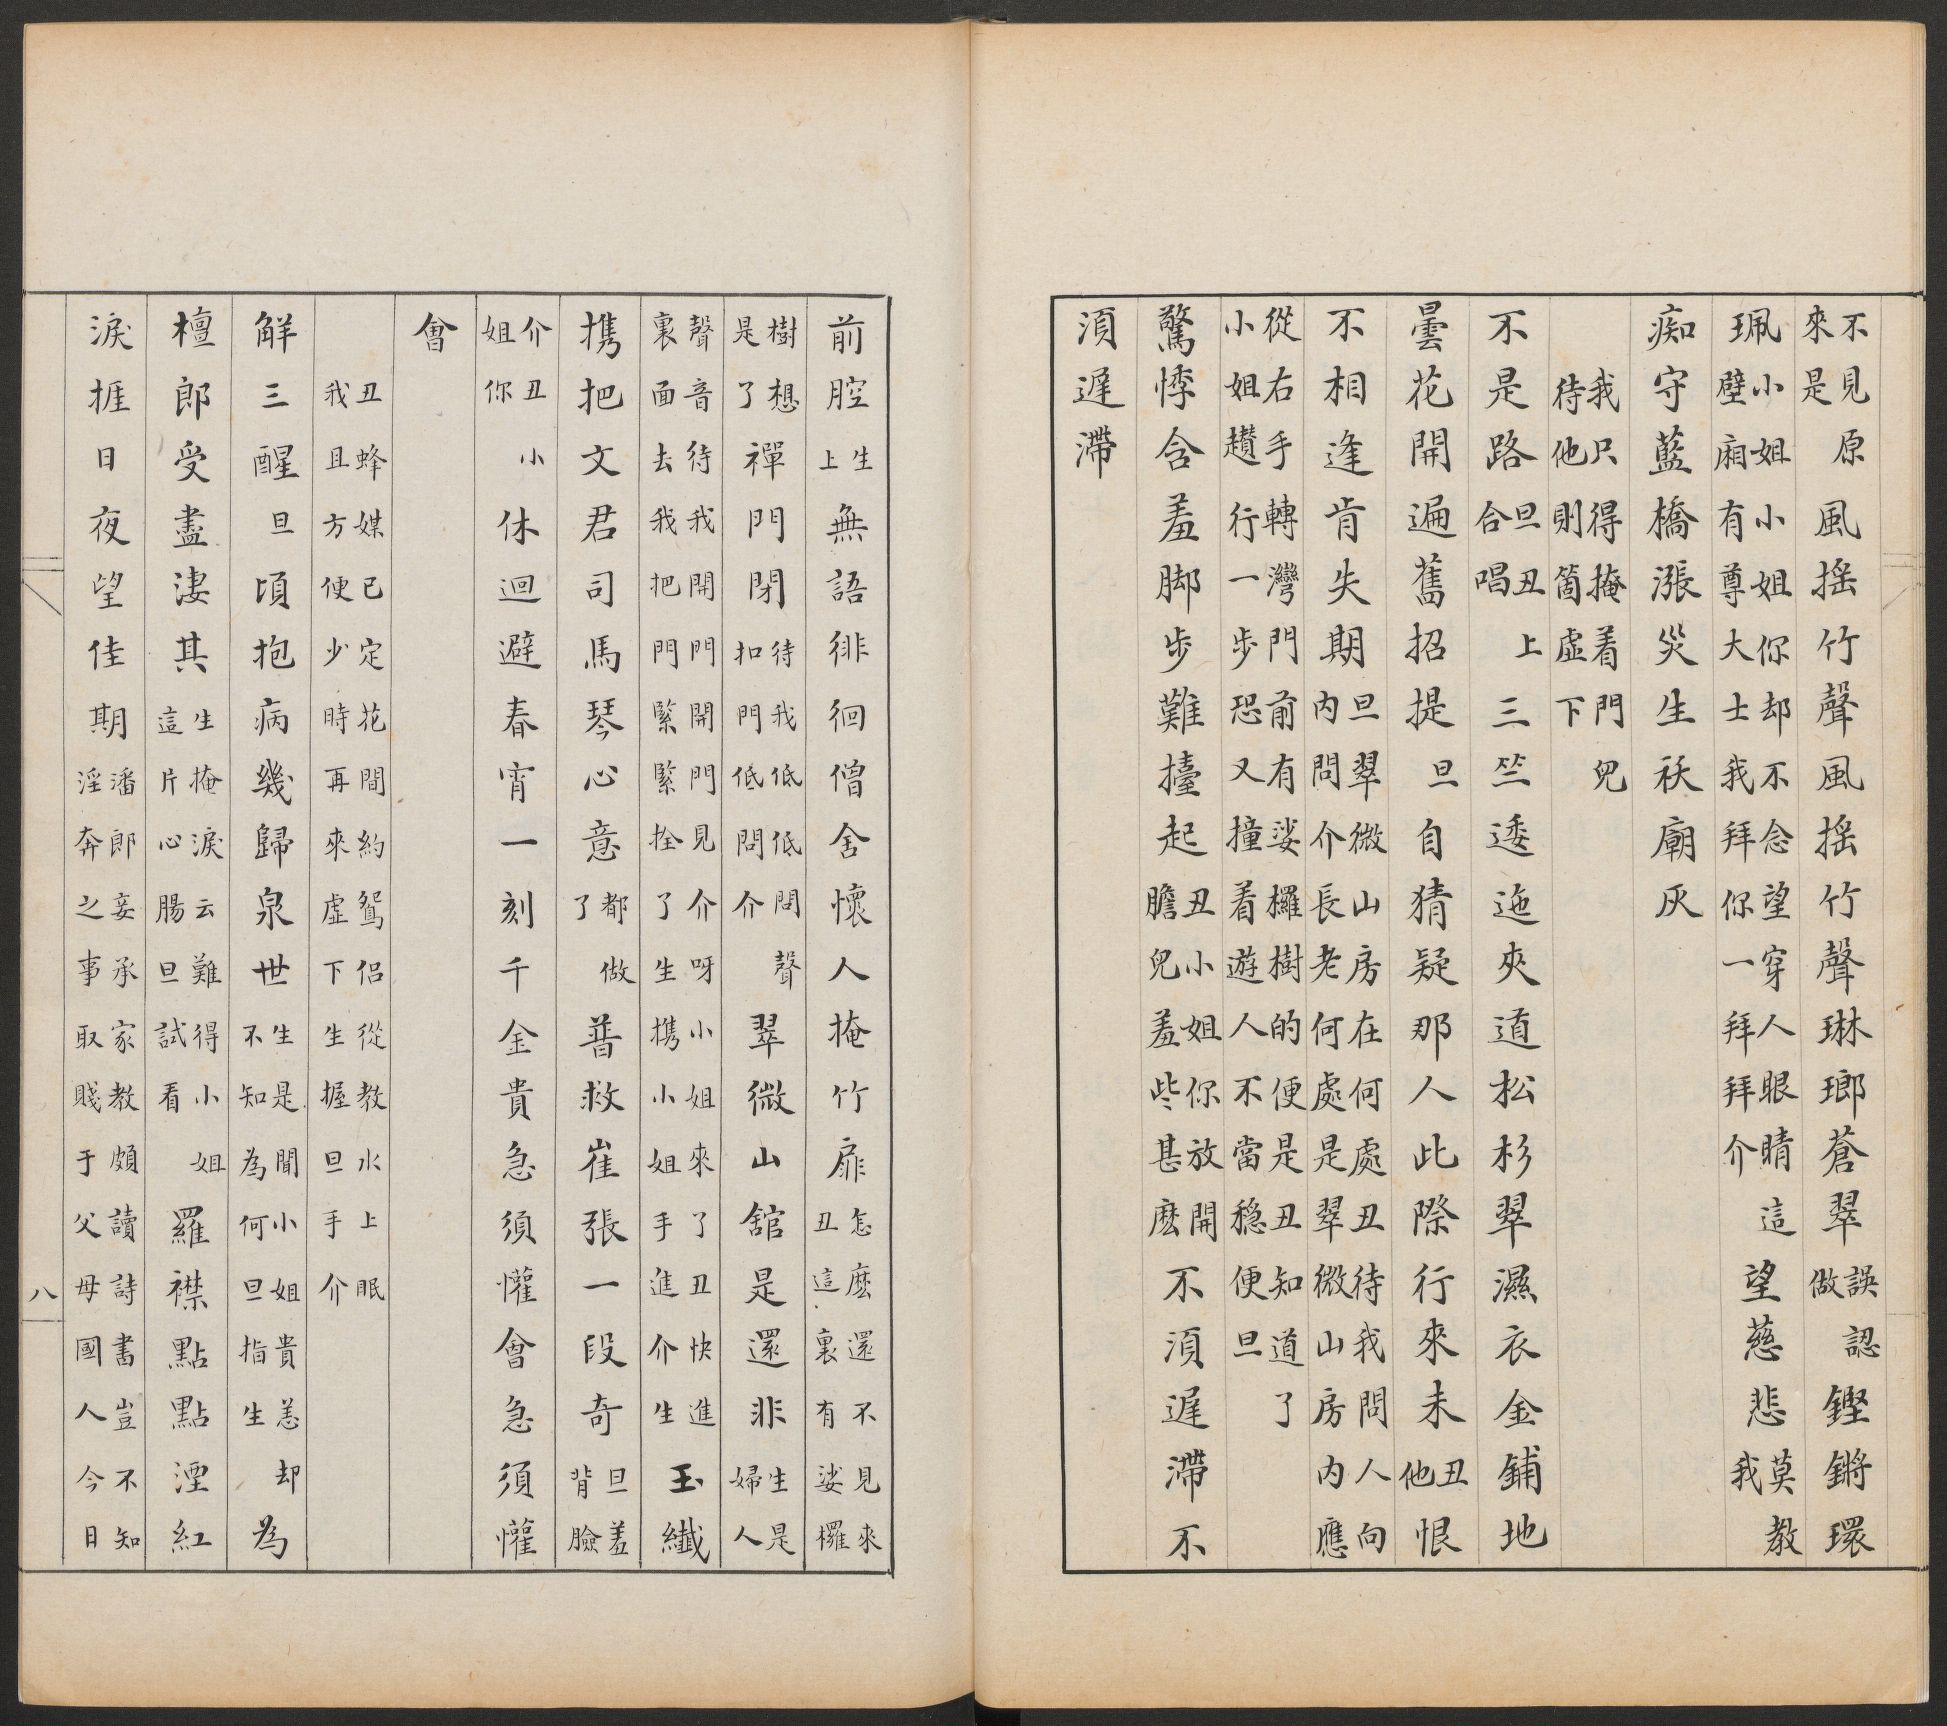 不見原來是風搖竹聲風搖竹聲琳瑯蒼翠誤認做鏗鏘環
珮小姐小姐你却不念望穿人眼睛這壁廂有尊大士我拜你一拜拜介望慈悲莫教我
痴守藍橋漲災生祅廟灰
我只得掩着門兒待他則箇虛下
不是路旦丑上合唱三竺逶迤夾道松杉翠濕衣金鋪地
曇花開遍舊招提旦自猜疑那人此際行來未丑他恨
不相逢肯失期旦翠微山房在何處丑待我問人向內問介長老何處是翠微山房內應
從右手轉灣門前有娑欏樹的便是丑知道了小姐趲行一步恐又撞着遊人不當穩便旦
驚悸含羞脚步難擡起丑小姐你放開膽兒羞些甚麽不湏遲滯不
湏遲滯
前腔生上無語徘徊僧舍懷人掩竹扉怎麽還不見來丑這裏有娑欏
樹想是了禪門閉待我低低問聲扣門低問介翠微山舘是還非生是婦人
聲音待我開門開門見介呀小姐來了丑快進裏面去我把門緊緊拴了生携小姐手進介生玉纖
携把文君司馬琴心意都做了普救崔張一段奇旦羞背臉
介丑小姐你休迴避春宵一刻千金貴急須懽會急須懽
會
丑蜂媒已定花間約鴛侶從教水上眠我且方便少時再來虛下生握旦手介
觧三醒旦頃抱病幾歸泉世生是聞小姐貴恙却不知為何旦指生為
檀郎受盡淒其生掩淚云難得小姐這片心腸旦試看羅襟點點溼紅
淚捱日夜望佳期潘郎妾承家教頗讀詩書豈不知淫奔之事取賤于父母國人今日
八